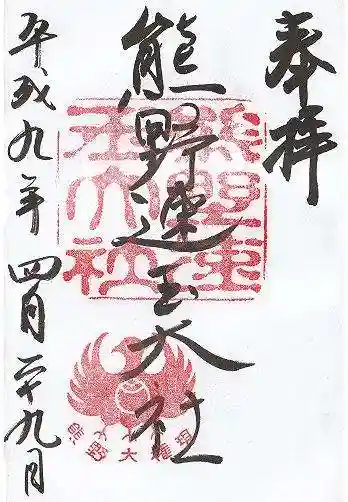 奉拝
熊野速玉大社
平成九年四月二十九日
熊野速
玉大社